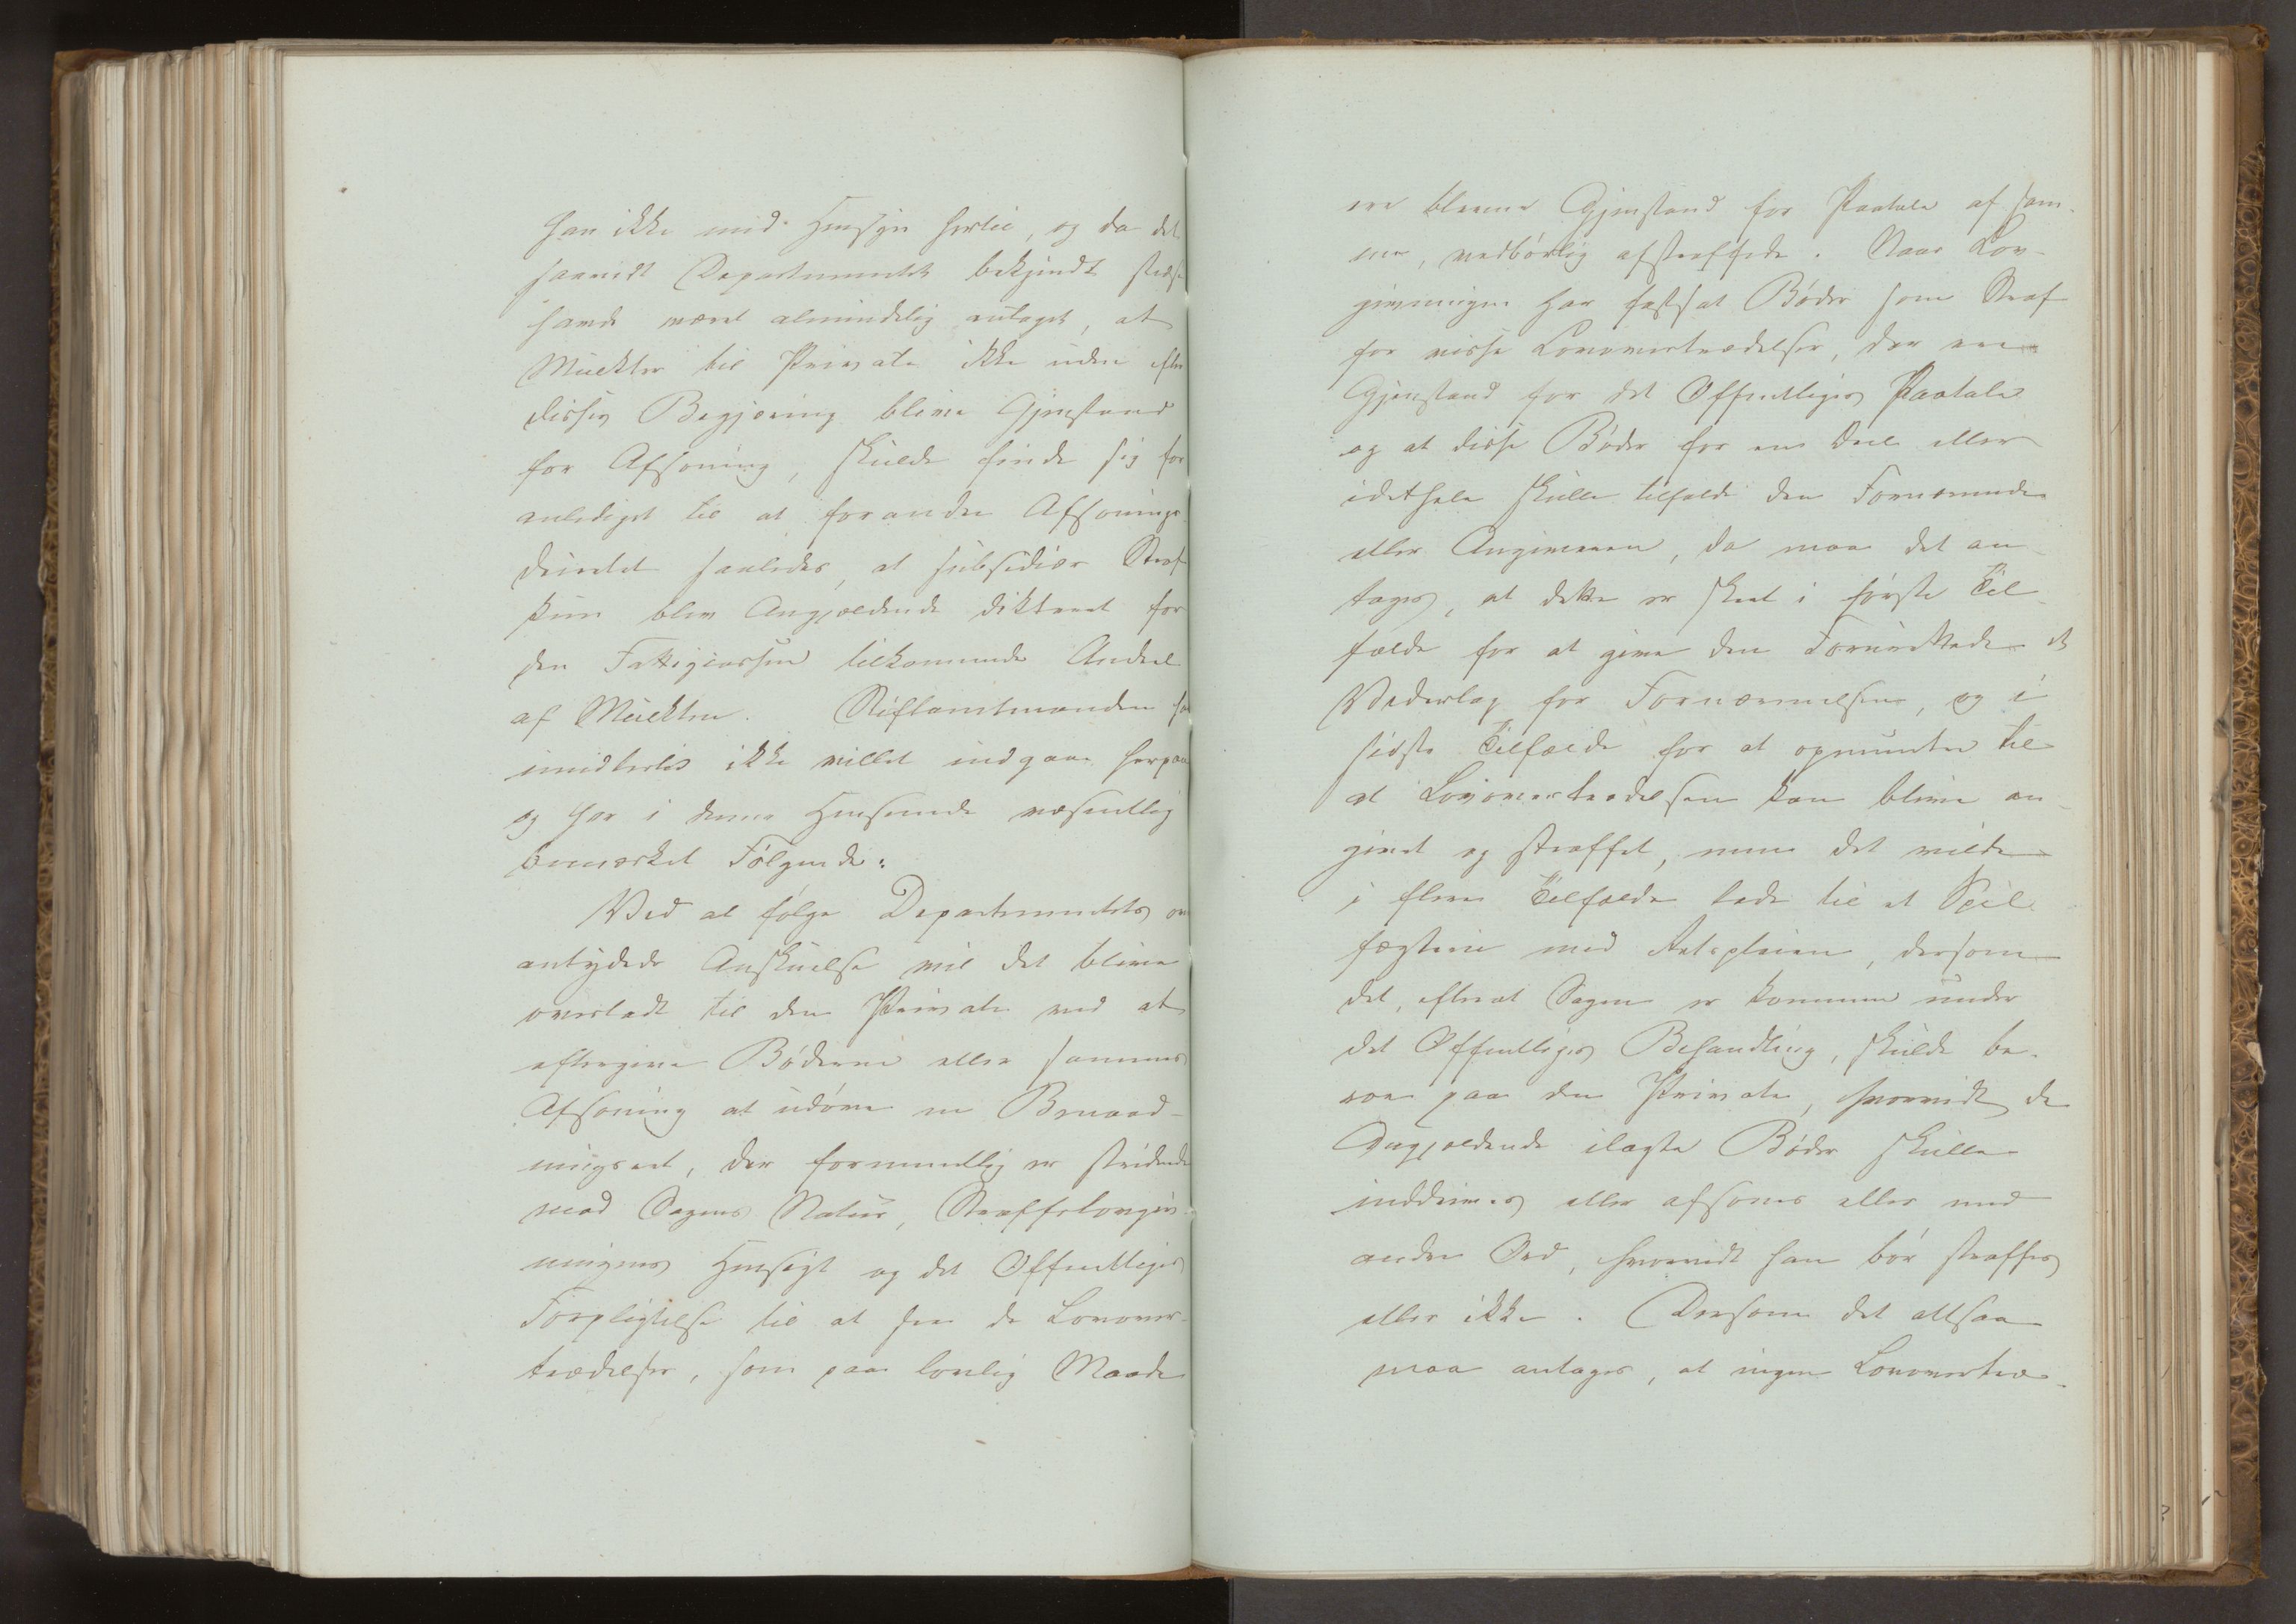 han ikke med Hensyn hertil, og da det
saavidt Departementet bekjendt stedse
havde været almindelig antaget, at
Mulkter til Private ikke uden efter
disses Begjæring blive Gjenstand
for Afsoning, skulde finde sig for
anlediget til at forandre Afsonings-
decretet saaledes, at subsidiær Straf
kun blev Angjældende dikteret for
den Fattigcassen tilkommende Andeel
af Mulkten. Stiftamtmanden har
imidlertid ikke villet indgaae herpaa
og har i denne Henseende væsentlig
bemærket Følgende:
Ved at følge Departementets
antydede Anskuelse vil det blive
overladt til den Private ved at
eftergive Bøderne eller sammes
Afsoning at udøve en Benaad-
ningsret, der formentlig er stridende
mod Sagens Natur, Straffelovgiv-
ningens Hensigt og det Offentliges
Forpligtelse til at see de Lovover-
trædelser, som paa lovlig Maade
ere blevne Gjenstand for Paatale af sam-
me, vedbørlig afstraffede. Naar Lov-
givningen har fastsat Bøder som Straf
for visse Lovovertrædelser, der ere
Gjenstand for det Offentliges Paatale
og at disse Bøder for en Deel eller
idethele skulle tilfalde den Fornærmede
eller Angiveren, da maa det an-
tages, at dette er skeet i første Til-
fælde for at give den Forurettede et
Vederlag for Fornærmelsen, og i
sidste Tilfælde for at opmuntre til
at Lovovertrædelsen kan blive an-
givet og straffet, men det vilde
i flere Tilfælde lede til et Spil-
fægterie med Retspleien, dersom
det, efterat Sagen er kommen under
det Offentliges Behandling, skulde be-
roe paa den Private, hvorvidt de
Angjældende ilagte Bøder skulle
inddrives eller afsones eller med
andre Ord, hvorvidt han bør straffes
eller ikke. Dersom det altsaa
maa antages, at ingen Lovovertræ-